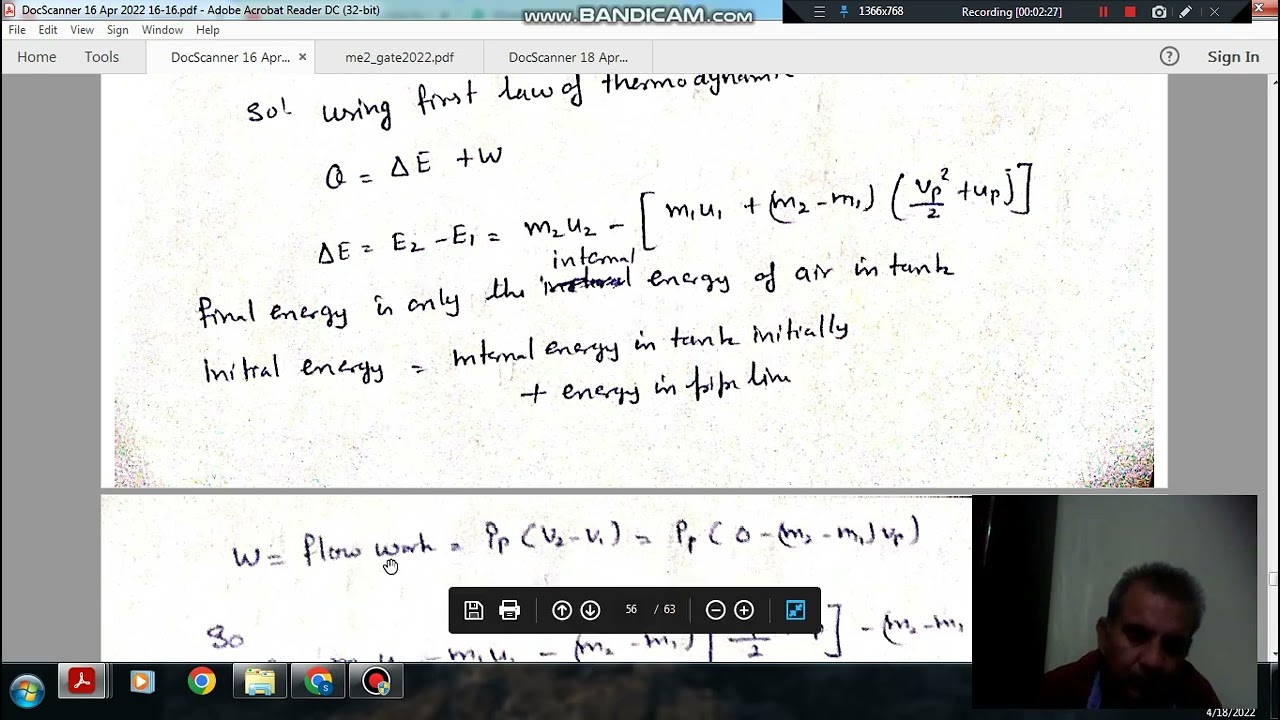 DocScanner 16 Apr 2022 16-16.pdf - Adobe Acrobat Reader DC (32-bit)
www.BANDICAM.com
1366x768
Recording [00:02:27]
File Edit View Sign Window Help
Home Tools DocScanner 16 Apr... × me2_gate2022.pdf DocScanner 18 Apr... ? Sign In
Sol using first law of thermodynamic
Q = ΔE + W
ΔE = E₂ - E₁ = m₂u₂ - [m₁u₁ + (m₂-m₁) (Vp²/2 + up)]
internal
final energy is only the energy of air in tank
Initial energy = internal energy in tank initially
+ energy in pipe line
W = flow work = Pp (V₂-V₁) = Pp (0-(m₂-m₁)Vp)
56 / 63
So
- m₁u₁ - (m₂-m₁) [ 2 ] - (m₂-m₁
4/18/2022